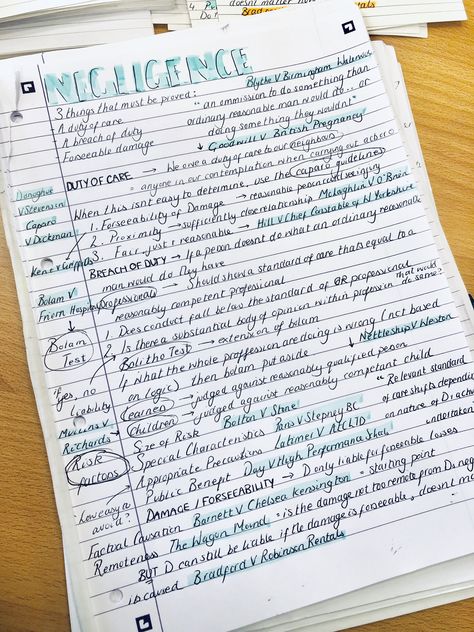 doesnt matter how
NEGLIGENCE
Blythe V Birmingham Waterworks
3 things that must be proved:
"an ommission to do something than
A duty of care
ordinary reasonable man would do... or
A breach of duty
doing something they wouldn't"
Forseeable damage
↓ Goodwill V British Pregnancy
DUTY OF CARE → We owe a duty of care to our neighbours
= anyone in our contemplation when carrying out act or o
When this isnt easy to determine, use the caparo guidelines
1. Forseeability of Damage → reasonable person
Mclaughlin V O'Brien
2. Proximity → sufficiently close relationship
3. Fair, just & reasonable → Hill V Chief Constable of N Yorkshire
Donoghue V Stevenson
Caparo V Dickman
Kent V Griffiths
BREACH OF DUTY → If a person doesnt do what an ordinary reasonable
man would do they have
Professionals → Should show a standard of care thats equal to a
reasonably competent professional
Bolam V Friern Hospital
Bolam Test
1 Does conduct fall below the standard of OR professional
2 Is there a substantial body of opinion within profession that would do same?
Bolitho Test → extension of bolam
↳ What the whole proffession are doing is wrong (not based
on logic) then bolam put aside
↓ Nettleship V Weston
If yes, no liability
Learned → judged against reasonably qualified person
Children → judged against reasonably competent child
Mullins V Richards
Risk factors
Size of Risk Bolton V Stone
"Relevant standard
Special Characteristics Paris V Stepney BC
of care shifts depending
Appropriate Precautions Latimer V AEC LTD
on nature of D's activity
Public Benefit Day V High Performance
undertaken
How easy to avoid?
DAMAGE / FORSEEABILITY → D only liable for forseeable losses
Factual Causation Barnett V Chelsea Kensington = starting point
Remoteness The Wagon Mound = is the damage not too remote from D's neg
BUT D can still be liable if the damage is forseeable, doesnt ma
is caused Bradford V Robinson Rentals